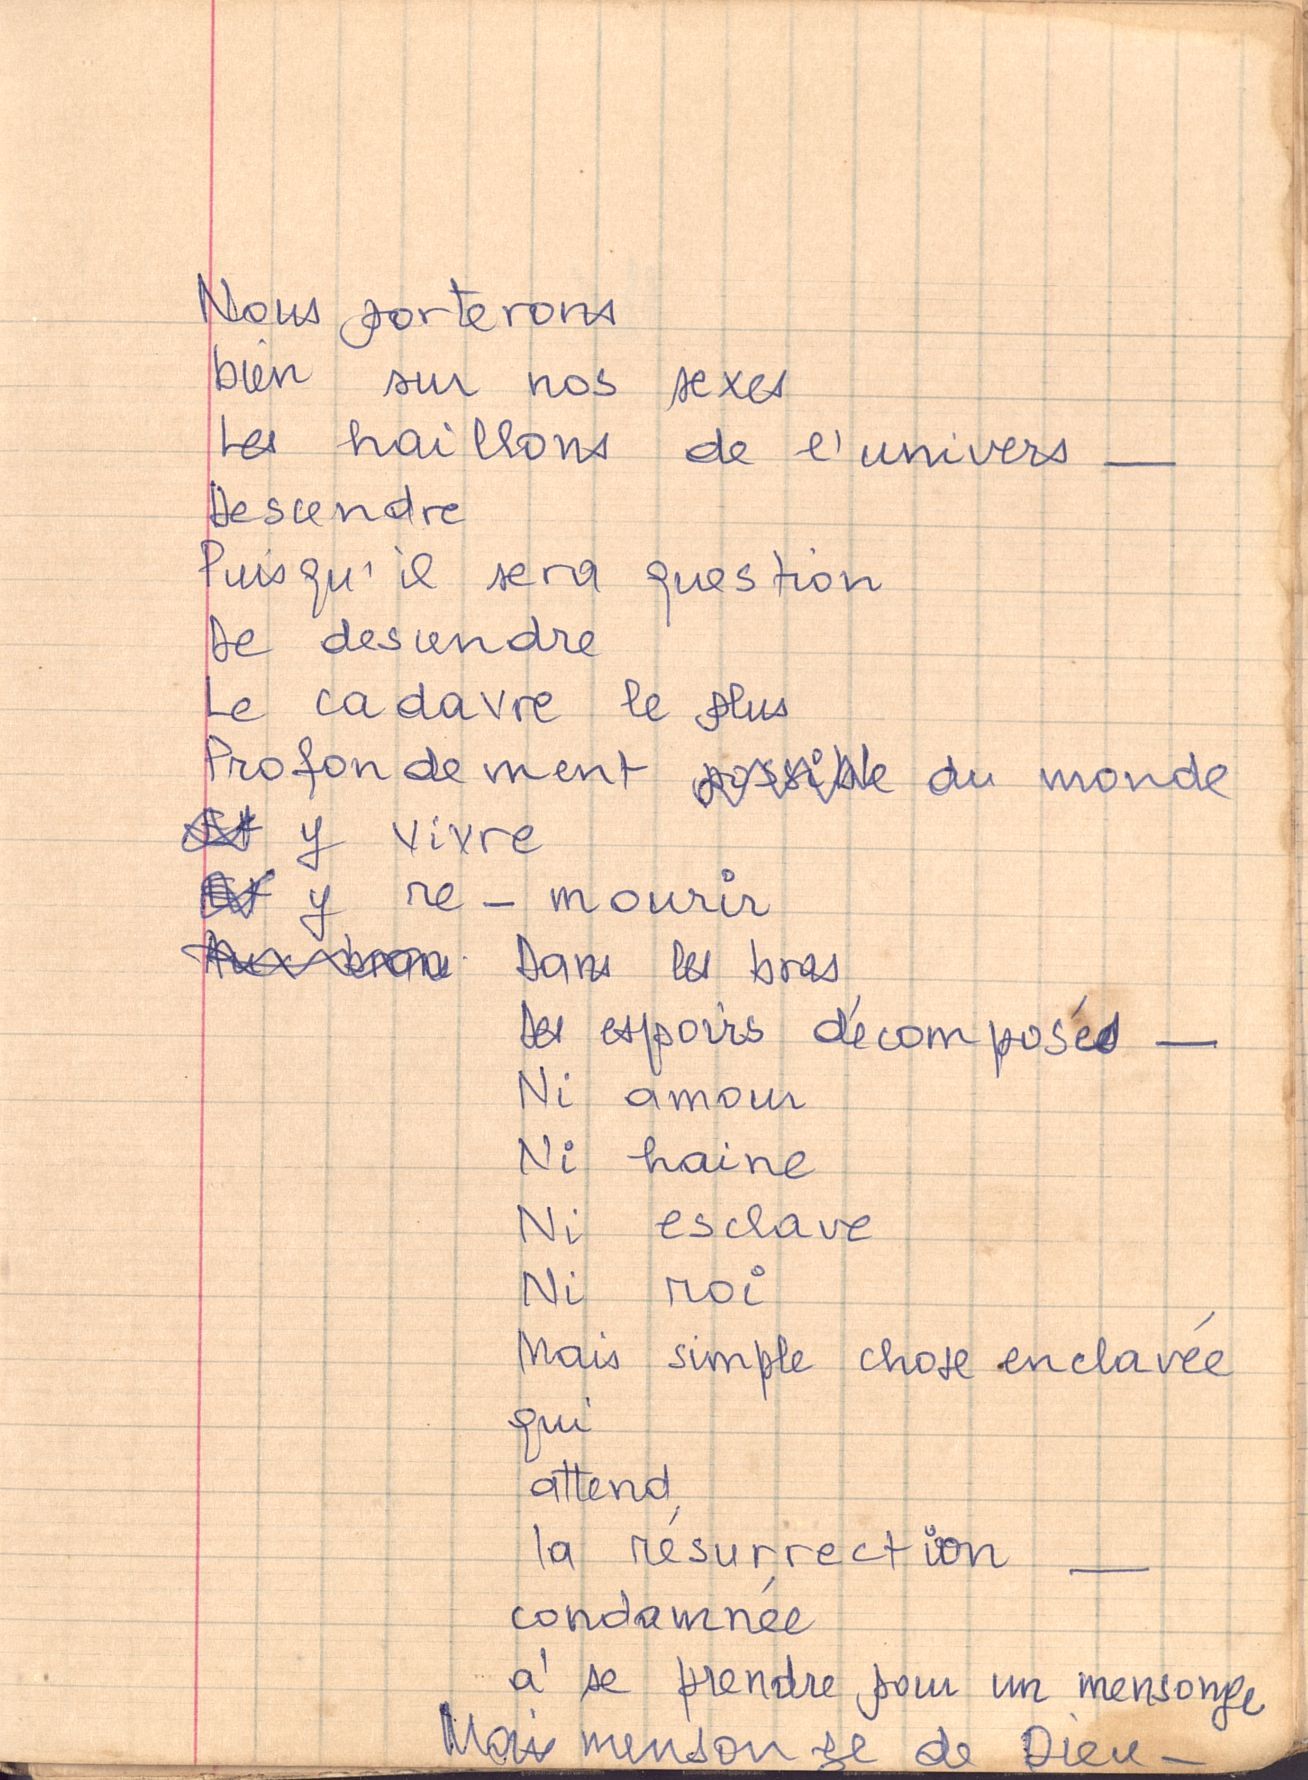 Nous porterons
bien sur nos sexes
Les haillons de l'univers —
Descendre
Puisqu'il sera question
De descendre
Le cadavre le plus
Profondement possible du monde
Et y vivre
Et y re-mourir
Dans les bras
Des espoirs décomposés —
Ni amour
Ni haine
Ni esclave
Ni roi
Mais simple chose enclavée
qui
attend
la résurrection —
condamnée
à se prendre pour un mensonge
Mais mensonge de Dieu —